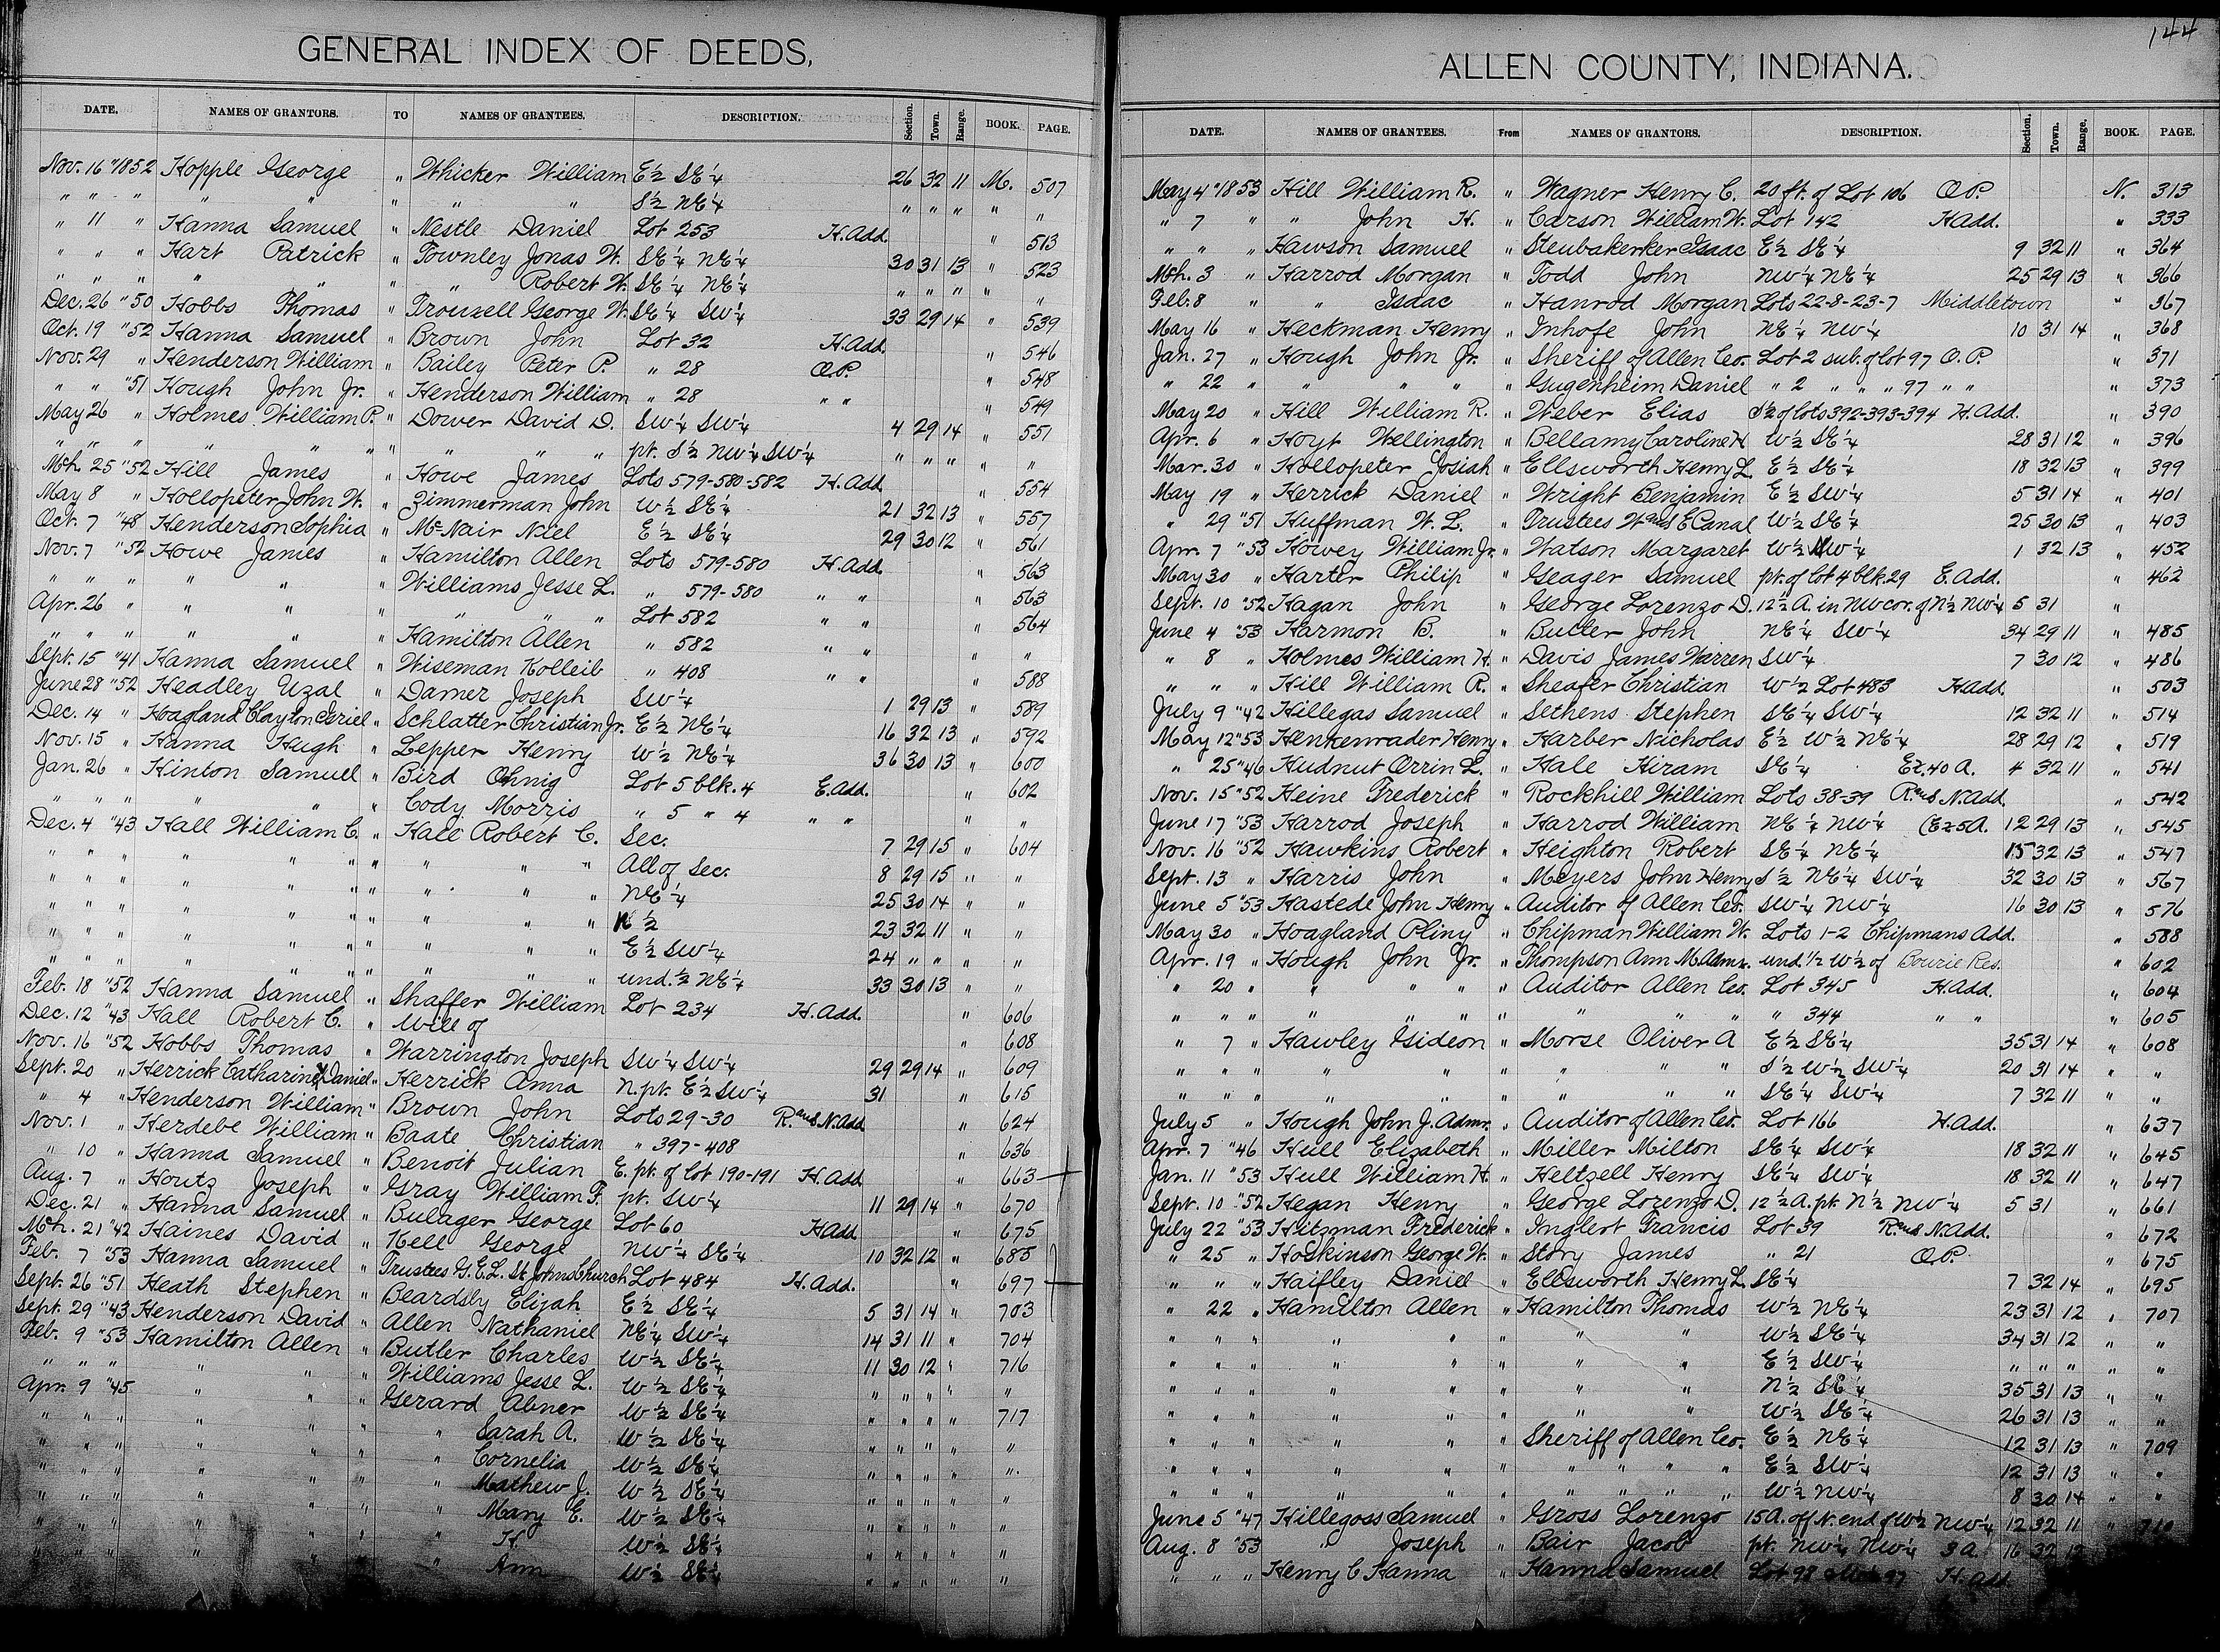 GENERAL INDEX OF DEEDS,
DATE. NAMES OF GRANTORS. TO NAMES OF GRANTEES. DESCRIPTION. Section. Town. Range. BOOK. PAGE.
Nov. 16 "1852 Hopple George " Whicker William E½ SE¼ 26 32 11 M. 507
" " " " " " " " S½ NE¼ " " " " "
" 11 " Hanna Samuel " Nestle Daniel Lot 253 H. Add. " 513
" " " Hart Patrick " Townley Jonas W. SE¼ NE¼ 30 31 13 " 523
" " " " " " " Robert W. SE¼ NE¼ " " " " "
Dec. 26 "50 Hobbs Thomas " Trouzell George W. SE¼ SW¼ 33 29 14 " 539
Oct. 19 "52 Hanna Samuel " Brown John Lot 32 H. Add. " 546
Nov. 29 " Henderson William " Bailey Peter P. " 28 O.P. " 548
" " "51 Hough John Jr. " Henderson William " 28 " " " 549
May 26 " Holmes William P. " Dower David D. SW¼ SW¼ 4 29 14 " 551
" " " " " " " " " pt. S½ NW¼ SW¼ " " " " "
Mch. 25 "52 Hill James " Howe James Lots 579-580-582 H. Add " 554
May 8 " Hollopeter John W. " Zimmerman John W½ SE¼ 21 32 13 " 557
Oct. 7 "48 Henderson Sophia " Mc Nair Niel E½ SE¼ 29 30 12 " 561
Nov. 7 "52 Howe James " Hamilton Allen Lots 579-580 H. Add. " 563
" " " " " " Williams Jesse L. " 579-580 " " " 563
Apr. 26 " " " " " " Lot 582 " " " 564
" " " " " " Hamilton Allen " 582 " " " "
Sept. 15 "41 Hanna Samuel " Wiseman Kolleib " 408 " " " 588
June 28 "52 Headley Uzal " Damer Joseph SW¼ 1 29 13 " 589
Dec. 14 " Hoagland Clayton Israel " Schlatter Christian Jr. E½ NE¼ 16 32 13 " 592
Nov. 15 " Hanna Hugh " Lepper Henry W½ NE¼ 36 30 13 " 600
Jan. 26 " Hinton Samuel " Bird Ochnig Lot 5 blk. 4 E. Add. " 602
" " " " " " Cody Morris " 5 " 4 " " " "
Dec. 4 "43 Hall William C. " Hall Robert C. Sec. 7 29 15 " 604
" " " " " " " " " All of Sec. 8 29 15 " "
" " " " " " " " " NE¼ 25 30 14 " "
" " " " " " " " " N½ 23 32 11 " "
" " " " " " " " " E½ SW¼ 24 " " " "
" " " " " " " " " und. ½ NE¼ 33 30 13 " "
Feb. 18 "52 Hanna Samuel " Shaffer William Lot 234 H. Add. " 606
Dec. 12 "43 Hall Robert C. " Will of " 608
Nov. 16 "52 Hobbs Thomas " Warrington Joseph SW¼ SW¼ 29 29 14 " 609
Sept. 20 " Herrick Catharine & Daniel " Herrick Anna N. pt. E½ SW¼ 31 " 615
" 4 " Henderson William " Brown John Lots 29-30 R. and N. Add " 624
Nov. 1 " Herdebe William " Baate Christian " 397-408 " 636
" 10 " Hanna Samuel " Benoit Julian E. pt. of lot 190-191 H. Add " 663
Aug. 7 " Houtz Joseph " Gray William F. pt. SW¼ 11 29 14 " 670
Dec. 21 " Hanna Samuel " Bulager George Lot 60 H Add " 675
Mch. 21 "42 Haines David " Kell George NW¼ SE¼ 10 32 12 " 685
Feb. 7 "53 Hanna Samuel " Trustees G.E.L. St Johns Church Lot 484 H. Add. " 697
Sept. 26 "51 Heath Stephen " Beardsly Elijah E½ SE¼ 5 31 14 " 703
Sept. 29 "43 Henderson David " Allen Nathaniel NE¼ SW¼ 14 31 11 " 704
Feb. 9 "53 Hamilton Allen " Butler Charles W½ SE¼ 11 30 12 " 716
" " " " " " Williams Jesse L. W½ SE¼ " " " " "
Apr. 9 "45 " " " Gerard Abner W½ SE¼ " " " " 717
" " " " " " " Sarah A. W½ SE¼ " " " " "
" " " " " " " Cornelia W½ SE¼ " " " " "
" " " " " " " Mathew J. W½ SE¼ " " " " "
" " " " " " " Mary E. W½ SE¼ " " " " "
" " " " " " " H. W½ SE¼ " " " " "
" " " " " " " Ann W½ SE¼ " " " " "
144
ALLEN COUNTY, INDIANA.
DATE. NAMES OF GRANTEES. From NAMES OF GRANTORS. DESCRIPTION. Section. Town. Range. BOOK. PAGE.
May 4 "1853 Hill William R. " Wagner Henry C. 20 ft. of Lot 106 O.P. N. 313
" 7 " " John H. " Carson William W. Lot 142 H Add. " 333
" " " Hawson Samuel " Steubakerker Isaac E½ SE¼ 9 32 11 " 364
Mch. 3 " Harrod Morgan " Todd John NW¼ NE¼ 25 29 13 " 366
Feb. 8 " " Isaac " Hanrod Morgan Lots 22-8-23-7 Middletown " 367
May 16 " Heckman Henry " Inhofe John NE¼ NW¼ 10 31 14 " 368
Jan. 27 " Hough John Jr. " Sheriff of Allen Co. Lot 2 sub. of lot 97 O.P. " 371
" 22 " " " " " Gugenheim Daniel " 2 " " " 97 " " " 373
May 20 " Hill William R. " Weber Elias S½ of lots 392-393-394 H. Add. " 390
Apr. 6 " Hoyt Wellington " Bellamy Caroline H W½ SE¼ 28 31 12 " 396
Mar. 30 " Hollopeter Josiah " Ellsworth Henry L. E½ SE¼ 18 32 13 " 399
May 19 " Herrick Daniel " Wright Benjamin E½ SW¼ 5 31 14 " 401
" 29 "51 Huffman W. L. " Trustees W and E Canal W½ SE¼ 25 30 13 " 403
Apr. 7 "53 Howey William Jr. " Watson Margaret W½ NW¼ 1 32 13 " 452
May 30 " Harter Philip " Geager Samuel pt. of lot 4 blk. 29 E. Add. " 462
Sept. 10 "52 Hagan John " George Lorenzo D. 12½ A. in NW cor. of N½ NW¼ 5 31 "
June 4 "53 Harmon B. " Butler John NE¼ SW¼ 34 29 11 " 485
" 8 " Holmes William H. " Davis James Warren SW¼ 7 30 12 " 486
" " " Hill William R. " Sheafer Christian W½ Lot 483 H Add. " 503
July 9 "42 Hillegas Samuel " Sethens Stephen SE¼ SW¼ 12 32 11 " 514
May 12 "53 Henkenrader Henry " Harber Nicholas E½ W½ NE¼ 28 29 12 " 519
" 25 "46 Hudnut Orrin L. " Hale Hiram SE¼ Ex. 40 A. 4 32 11 " 541
Nov. 15 "52 Heine Frederick " Rockhill William Lots 38-39 R. and N. Add. " 542
June 17 "53 Harrod Joseph " Harrod William NE¼ NW¼ (Ex 5 A. 12 29 13 " 545
Nov. 16 "52 Hawkins Robert " Heighton Robert SE¼ NE¼ 15 32 13 " 547
Sept. 13 " Harris John " Meyers John Henry S½ NE¼ SW¼ 32 30 13 " 567
June 5 "53 Hastede John Henry " Auditor of Allen Co. SW¼ NW¼ 16 30 13 " 576
May 30 " Hoagland Pliny " Chipman William W. Lots 1-2 Chipmans Add. " 588
Apr. 19 " Hough John Jr. " Thompson Ann M. Admx. und. ½ W½ of Bourie Res. " 602
" 20 " " " " " Auditor Allen Co. Lot 345 H Add. " 604
" " " " " " " " " " " 344 " " " 605
" 7 " Hawley Gideon " Morse Oliver A E½ SE¼ 35 31 14 " 608
" " " " " " " " " S½ W½ SW¼ 20 31 14 " "
" " " " " " " " " SE¼ SW¼ 7 32 11 " "
July 5 " Hough John J. Admr. " Auditor of Allen Co. Lot 166 H. Add. " 637
Apr. 7 "46 Hull Elizabeth " Miller Milton SE¼ SW¼ 18 32 11 " 645
Jan. 11 "53 Hull William H. " Heltzell Henry SE¼ SW¼ 18 32 11 " 647
Sept. 10 "52 Hegan Henry " George Lorenzo D. 12½ A. pt. N½ NW¼ 5 31 " 661
July 22 "53 Hitzman Frederick " Inglert Francis Lot 39 R. and N. Add. " 672
" 25 " Hoskinson George W. " Story James " 21 O.P. " 675
" " " Haifley Daniel " Ellsworth Henry L. SE¼ 7 32 14 " 695
" 22 " Hamilton Allen " Hamilton Thomas W½ NE¼ 23 31 12 " 707
" " " " " " " " W½ SE¼ 34 31 12 " "
" " " " " " " " E½ SW¼ " " " " "
" " " " " " " " N½ SE¼ 35 31 13 " "
" " " " " " " " W½ SE¼ 26 31 13 " "
" " " " " " Sheriff of Allen Co. E½ NE¼ 12 31 13 " 709
" " " " " " " " " " E½ SW¼ 12 31 13 " "
" " " " " " " " " " W½ NW¼ 8 30 14 " "
June 5 "47 Hillegoss Samuel " Gross Lorenzo 15 A. off N. end of W½ NW¼ 12 32 11 " 710
Aug. 8 "53 " Joseph " Bair Jacob pt. NW¼ NW¼ 3 A. 16 32
" " " Henry C Hanna " Hanna Samuel Lot 98 97 H. Add